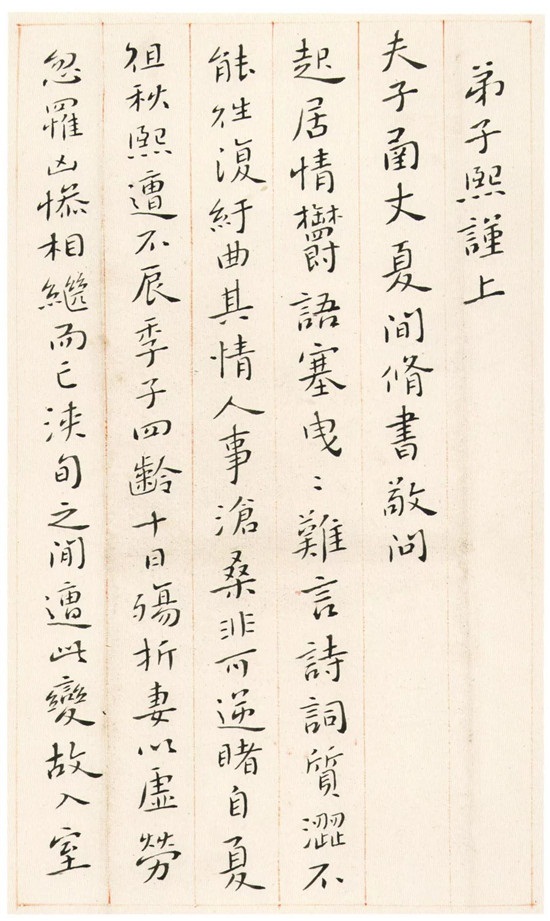 弟子熙謹上
夫子函丈夏间脩書敬问
起居情欝語塞曳〻難言詩詞質澀不
能往復紆曲其情人事滄桑非可逆睹自夏
徂秋熙遭不辰季子四齡十日殤折妻以虛勞
忽罹凶慘相繼而亡浹旬之间遭此變故入室